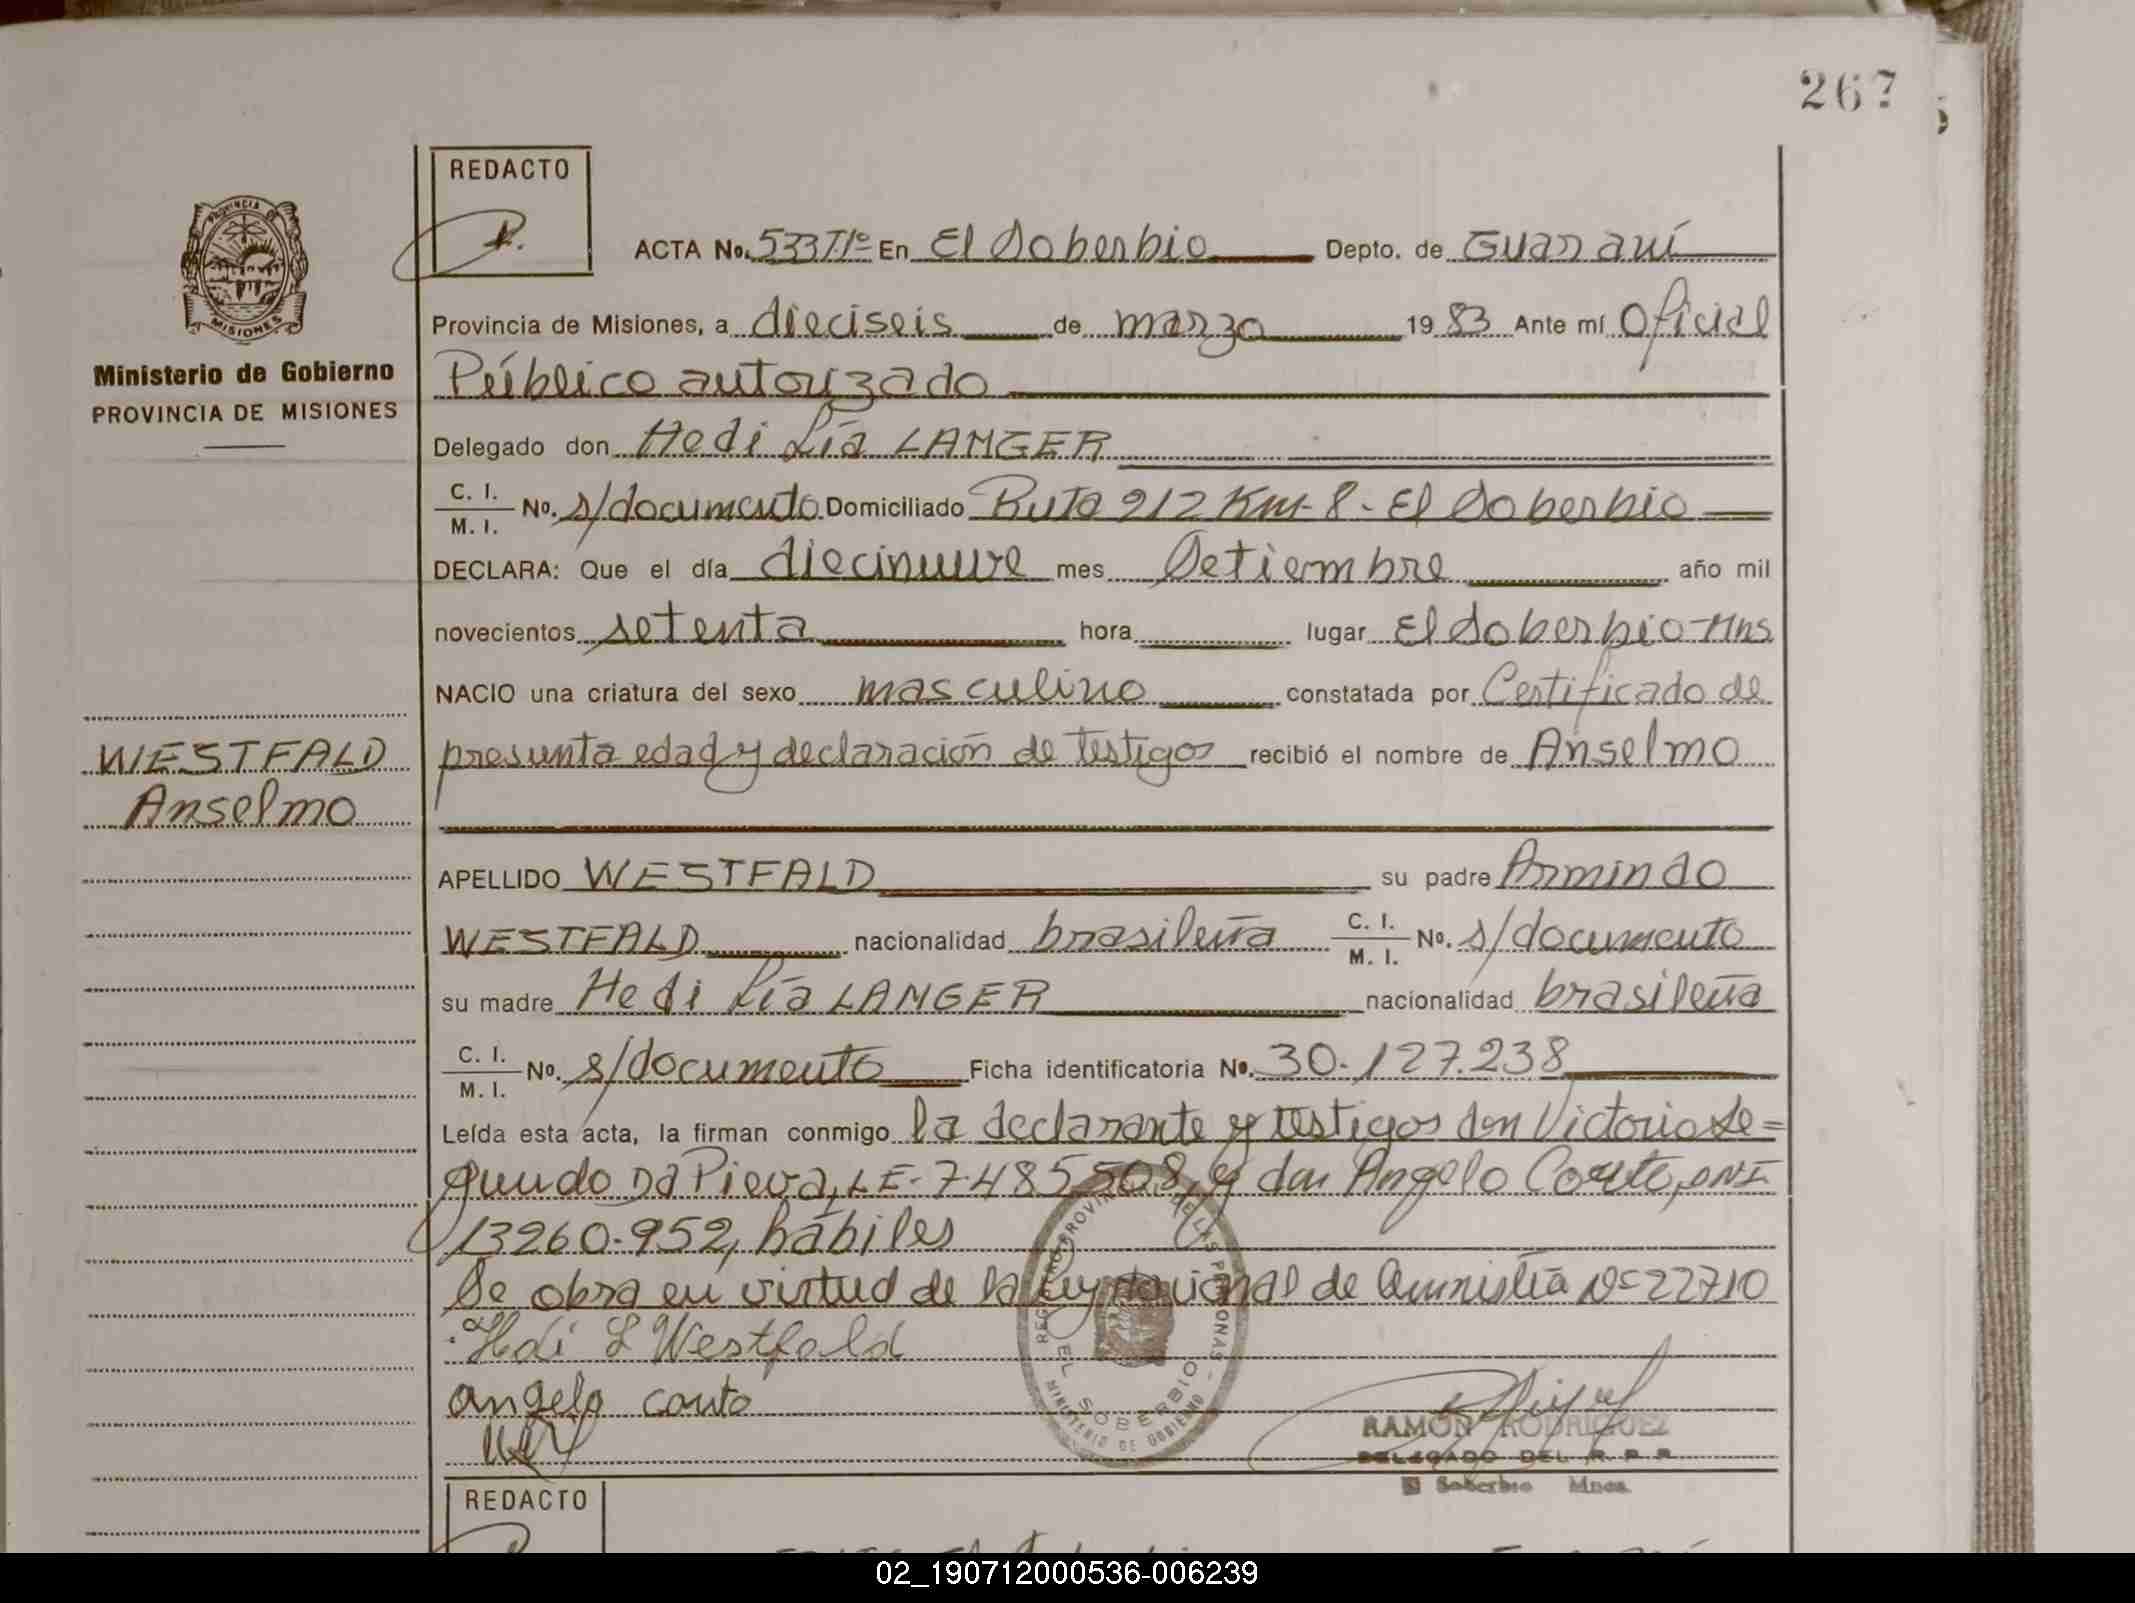 267
REDACTO
ACTA No. 533 TIº En El Soberbio Depto. de Guaraní
Provincia de Misiones, a dieciseis de marzo 19 83 Ante mí Oficial
Ministerio de Gobierno
PROVINCIA DE MISIONES
Público autorizado
Delegado don Hedi Lía LANGER
C. I.
M. I.
No. s/documento Domiciliado Ruta 212 Km-8-El Soberbio
DECLARA: Que el día diecinueve mes Setiembre año mil
novecientos setenta hora lugar El Soberbio-Mns
NACIO una criatura del sexo masculino constatada por Certificado de
WESTFALD
Anselmo
presunta edad y declaración de testigos recibió el nombre de Anselmo
APELLIDO WESTFALD su padre Armindo
WESTFALD nacionalidad brasileña C. I. M. I. No. s/documento
su madre Hedi Lía LANGER nacionalidad brasileña
C. I.
M. I.
No. s/documento Ficha identificatoria No. 30.127.238
Leída esta acta, la firman conmigo la declarante y testigos don Victorio Se=
gundo Da Pieva, LE-7485508, y don Angelo Couto, DNI
13260.952, hábiles
Se obra en virtud de la Ley Nacional de Amnistía Nº 22710
Hedi L Westfald
angelo couto
REGISTRO PROVINCIAL DE LAS PERSONAS
EL SOBERBIO
MINISTERIO DE GOBIERNO
RAMON RODRIGUEZ
DELEGADO DEL R. P. P.
El Soberbio Mnes.
REDACTO
02_190712000536-006239